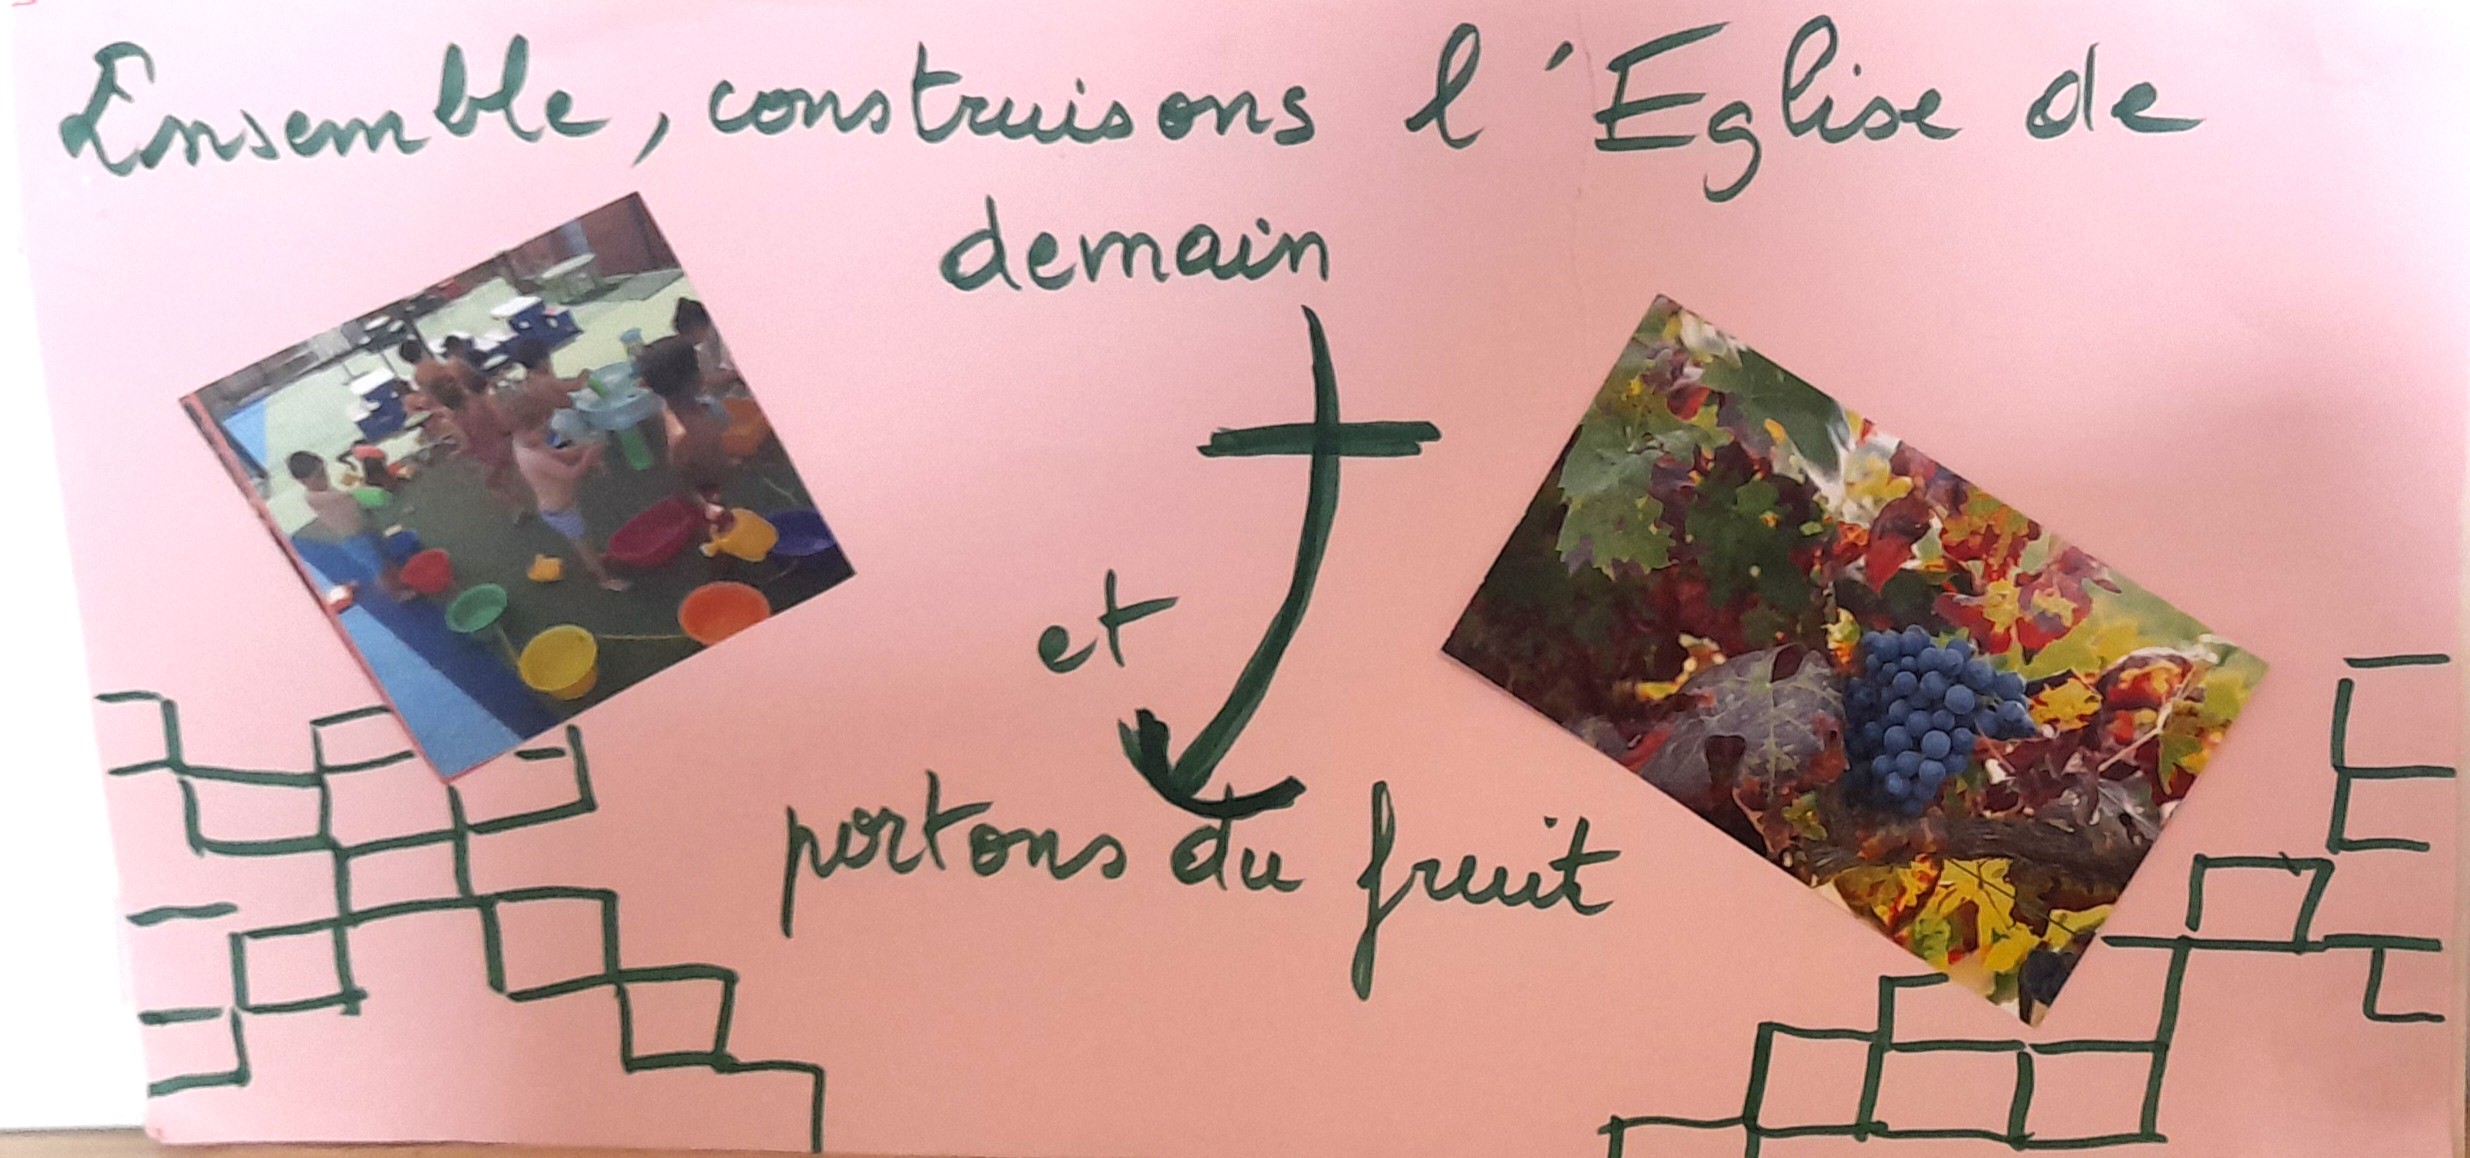 Ensemble, construisons l'Eglise de
demain
et
portons du fruit